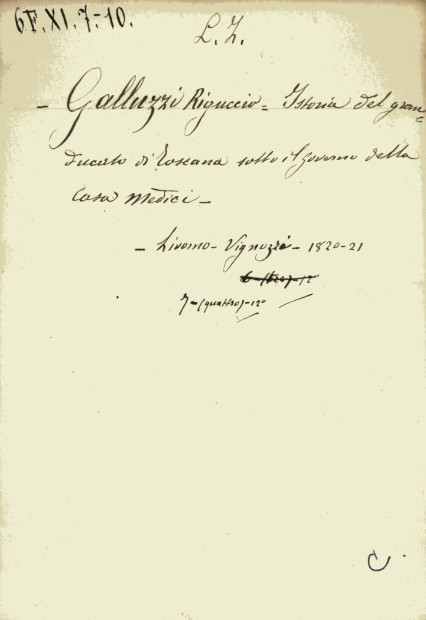 6F.XI.7-10.
L. Z.
- Galluzzi Riguccio = Istoria del gran=
ducato di Toscana sotto il governo della
Casa Medici -
- Livorno - Vignozzi - 1820-21
7 - (quattro) - 12°